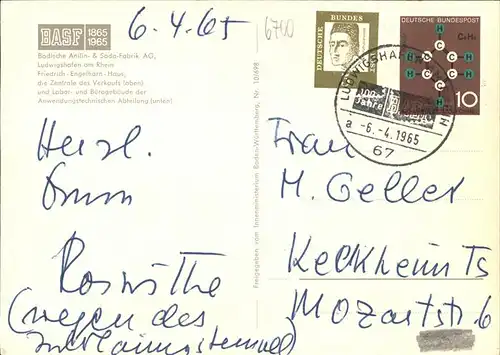 6.4.65
6700
BASF 1865 1965
Badische Anilin- & Soda-Fabrik AG,
Ludwigshafen am Rhein
Friedrich-Engelhorn-Haus,
die Zentrale des Verkaufs (oben)
und Labor- und Bürogebäude der
Anwendungstechnischen Abteilung (unten)
Herzl.
Roswitha
(wegen des
Freigegeben vom Innenministerium Baden-Württemberg, Nr.
DEUTSCHE BUNDES
DEUTSCHE BUNDESPOST
C₆H₆
H H
C
H C C H
H C C H
C
H
10
LUDWIGSHAFEN
100 Jahre
a -6.-4.1965
67
Frau
M. Geller
Keckheim Ts
Mozartstr 6